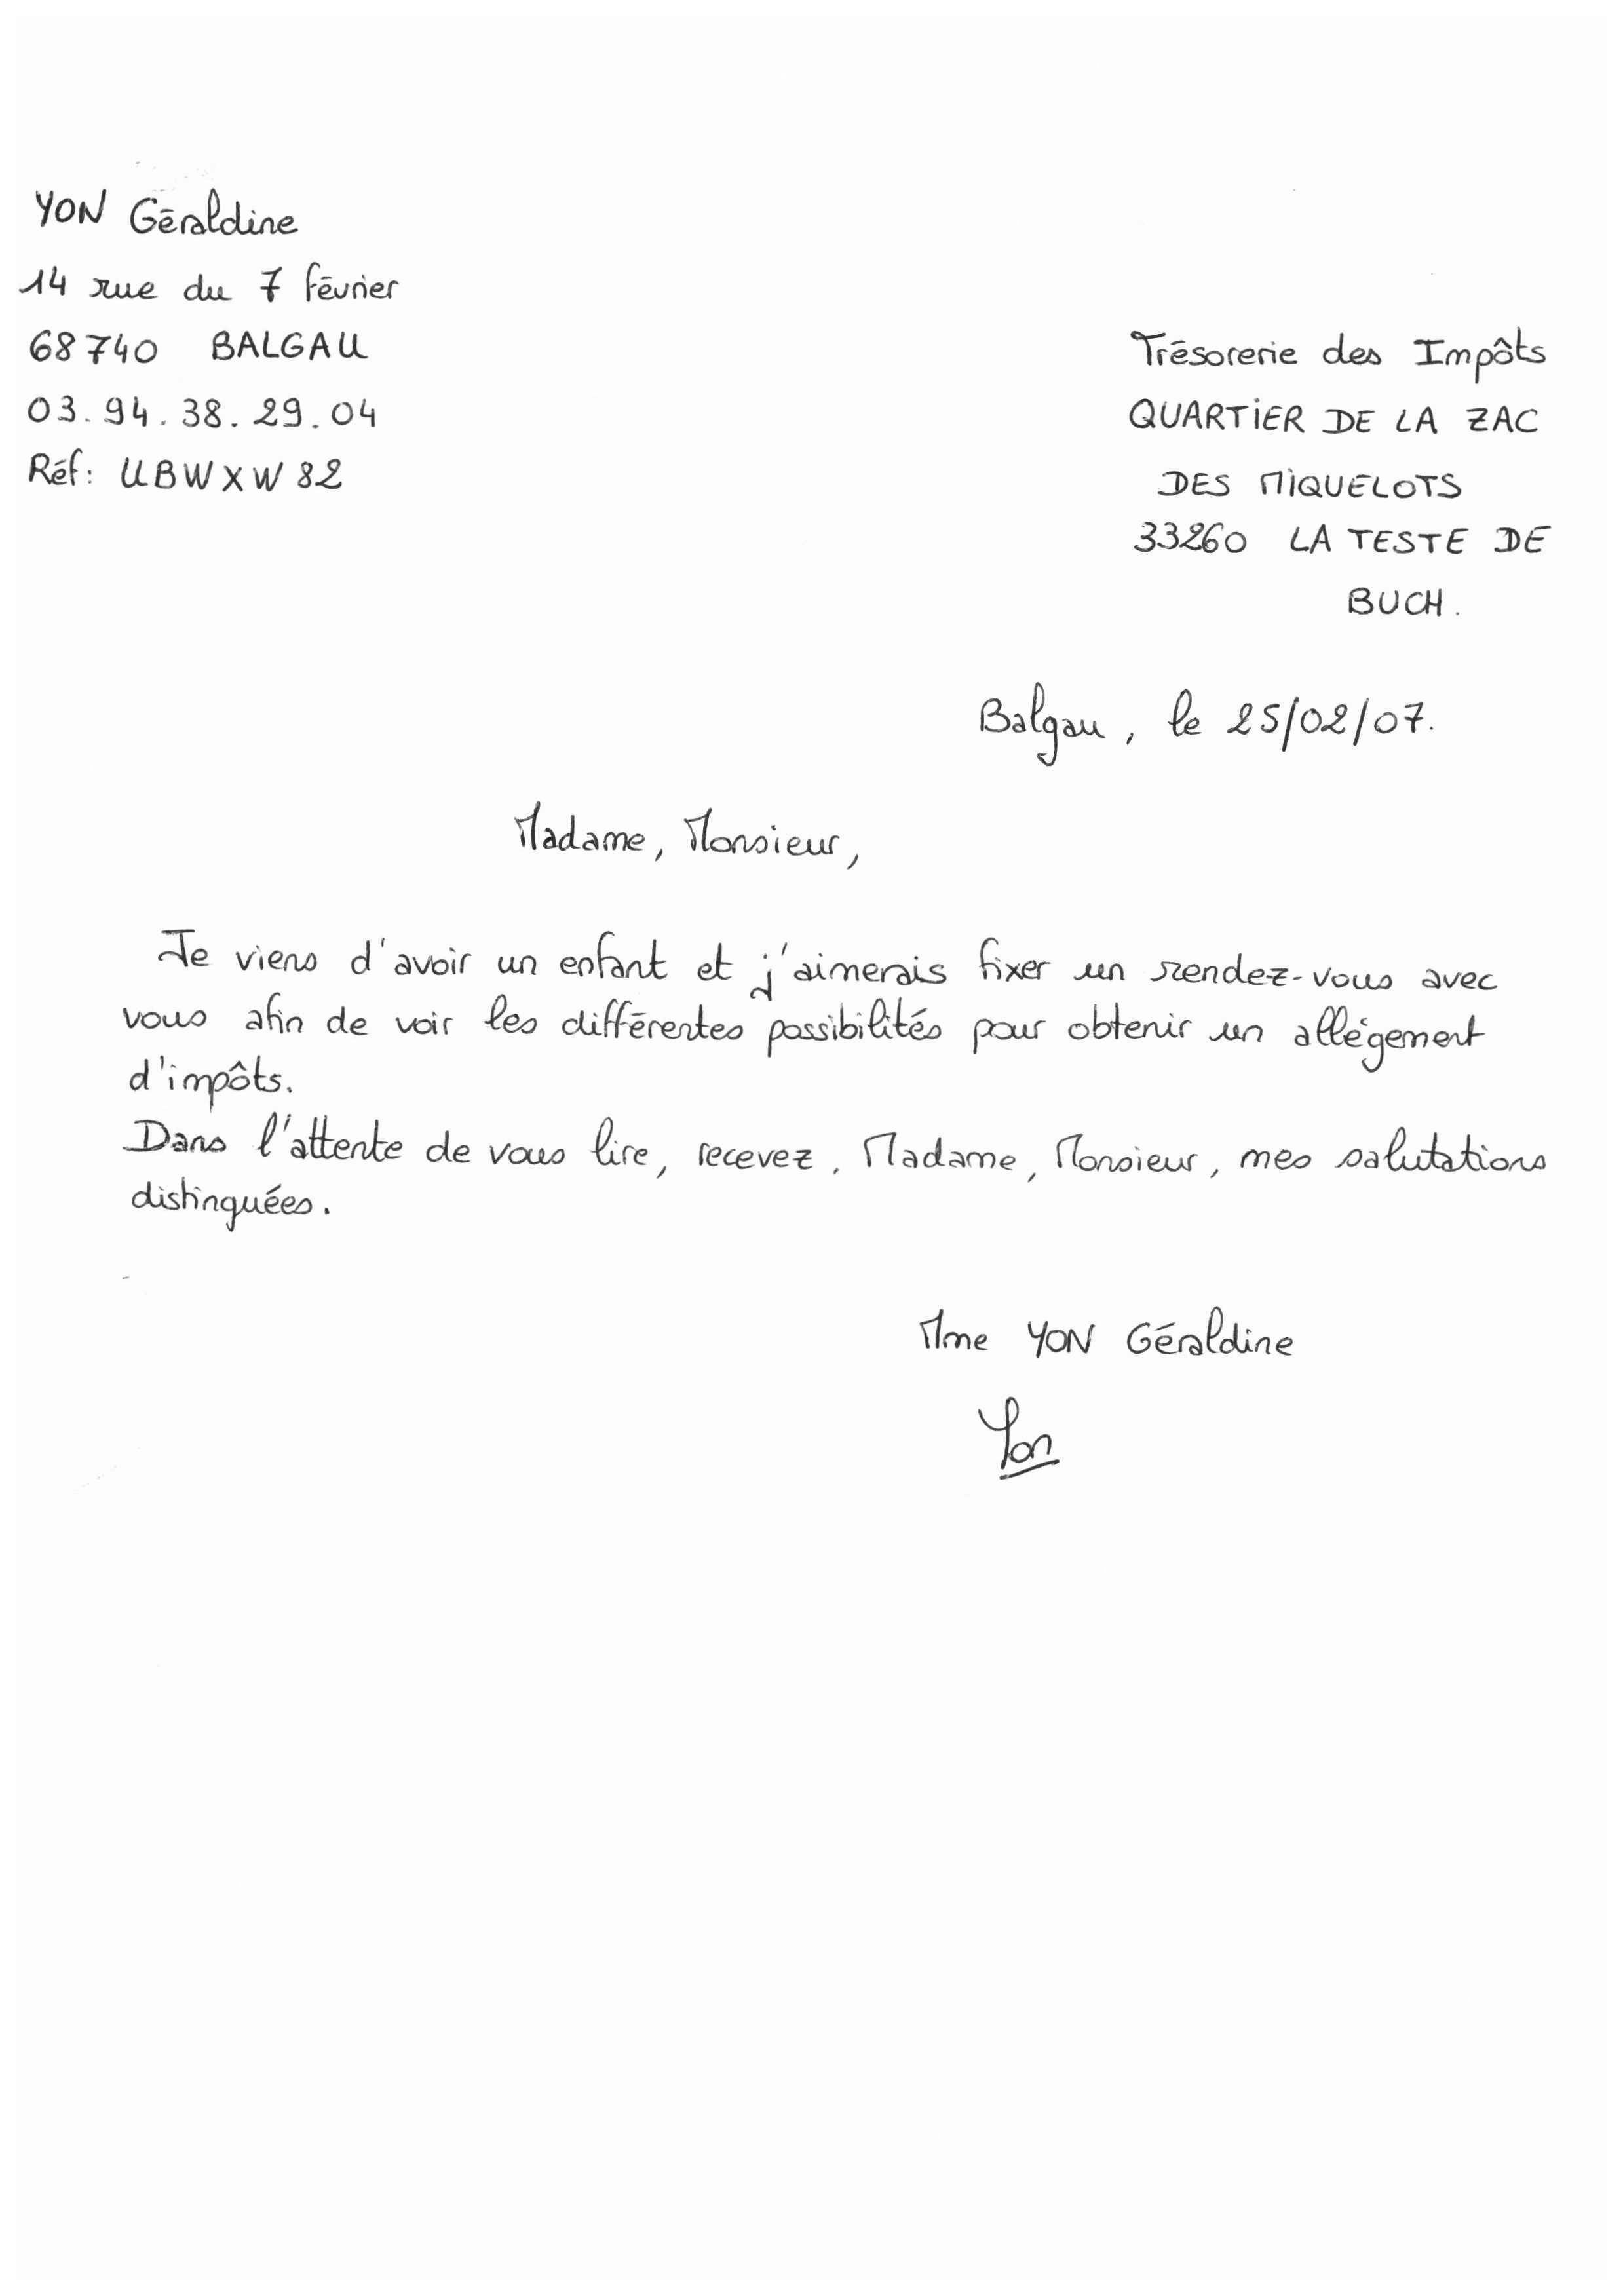 YON Géraldine
14 rue du 7 février
68740 BALGAU
03.94.38.29.04
Réf: UBWXW82
Trésorerie des Impôts
QUARTIER DE LA ZAC
DES MIQUELOTS
33260 LA TESTE DE
BUCH.
Balgau, le 25/02/07.
Madame, Monsieur,
Je viens d'avoir un enfant et j'aimerais fixer un rendez-vous avec
vous afin de voir les différentes possibilités pour obtenir un allégement
d'impôts.
Dans l'attente de vous lire, recevez, Madame, Monsieur, mes salutations
distinguées.
Mme YON Géraldine
Yon